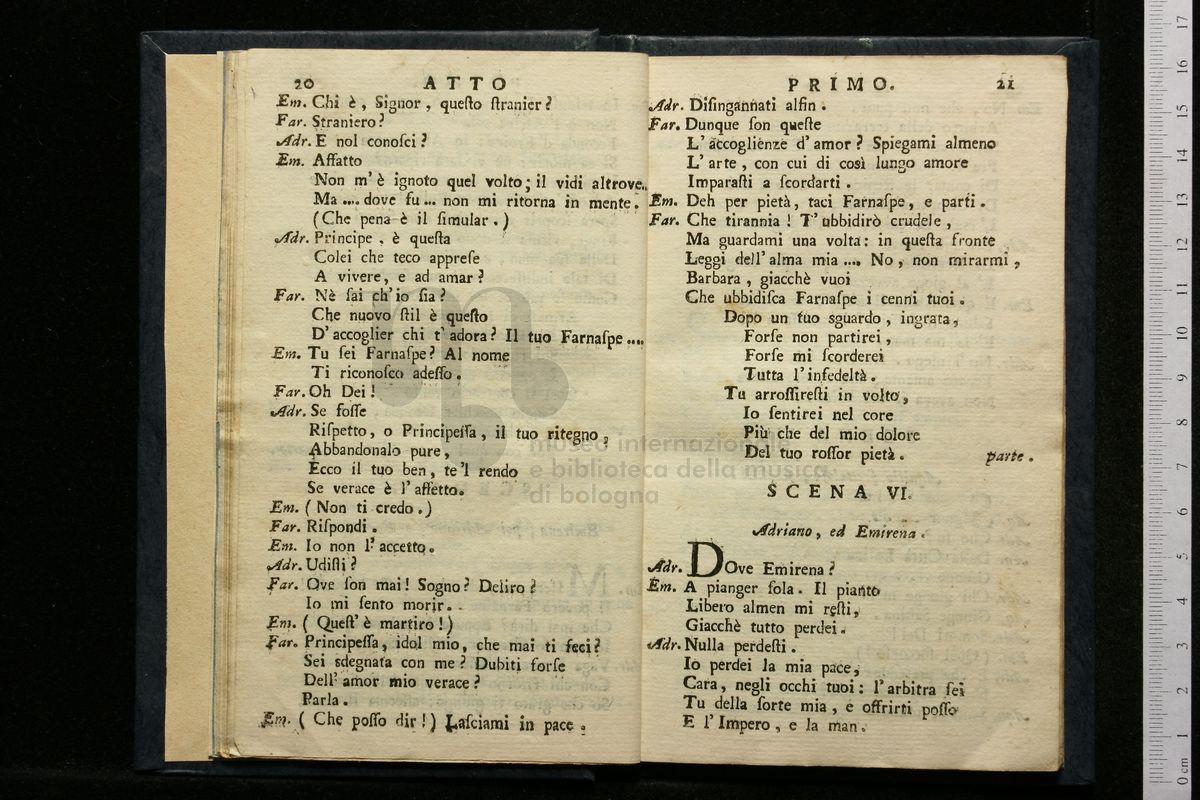 20 ATTO
Em. Chi è, Signor, queſto ſtranier?
Far. Straniero?
Adr. E nol conoſci?
Em. Affatto
Non m'è ignoto quel volto; il vidi altrove..
Ma .... dove fu ... non mi ritorna in mente.
(Che pena è il ſimular.)
Adr. Principe, è queſta
Colei che teco appreſe
A vivere, e ad amar?
Far. Nè ſai ch'io ſia?
Che nuovo ſtil è queſto
D'accoglier chi t'adora? Il tuo Farnaſpe ....
Em. Tu ſei Farnaſpe? Al nome
Ti riconoſco adeſſo.
Far. Oh Dei!
Adr. Se foſſe
Riſpetto, o Principeſſa, il tuo ritegno,
Abbandonalo pure,
Ecco il tuo ben, te'l rendo
Se verace è l'affetto.
Em. (Non ti credo.)
Far. Riſpondi.
Em. Io non l'accetto.
Adr. Udiſti?
Far. Ove ſon mai! Sogno? Deliro?
Io mi ſento morir..
Em. (Queſt'è martiro!)
Far. Principeſſa, idol mio, che mai ti feci?
Sei sdegnata con me? Dubiti forſe
Dell'amor mio verace?
Parla.
Em. (Che poſſo dir!) Laſciami in pace.
PRIMO. 21
Adr. Diſingannati alfin.
Far. Dunque ſon queſte
L'accoglienze d'amor? Spiegami almeno
L'arte, con cui di così lungo amore
Imparaſti a ſcordarti.
Em. Deh per pietà, taci Farnaſpe, e parti.
Far. Che tirannia! T'ubbidirò crudele,
Ma guardami una volta: in queſta fronte
Leggi dell'alma mia .... No, non mirarmi,
Barbara, giacchè vuoi
Che ubbidiſca Farnaſpe i cenni tuoi.
Dopo un tuo sguardo, ingrata,
Forſe non partirei,
Forſe mi ſcorderei
Tutta l'infedeltà.
Tu arroſſireſti in volto,
Io ſentirei nel core
Più che del mio dolore
Del tuo roſſor pietà. parte.
SCENA VI.
Adriano, ed Emirena.
Adr. DOve Emirena?
Em. A pianger ſola. Il pianto
Libero almen mi reſti,
Giacchè tutto perdei.
Adr. Nulla perdeſti.
Io perdei la mia pace,
Cara, negli occhi tuoi: l'arbitra ſei
Tu della ſorte mia, e offrirti poſſo
E l'Impero, e la man.
museo internazionale
e biblioteca della musica
di bologna
0 cm 1 2 3 4 5 6 7 8 9 10 11 12 13 14 15 16 17